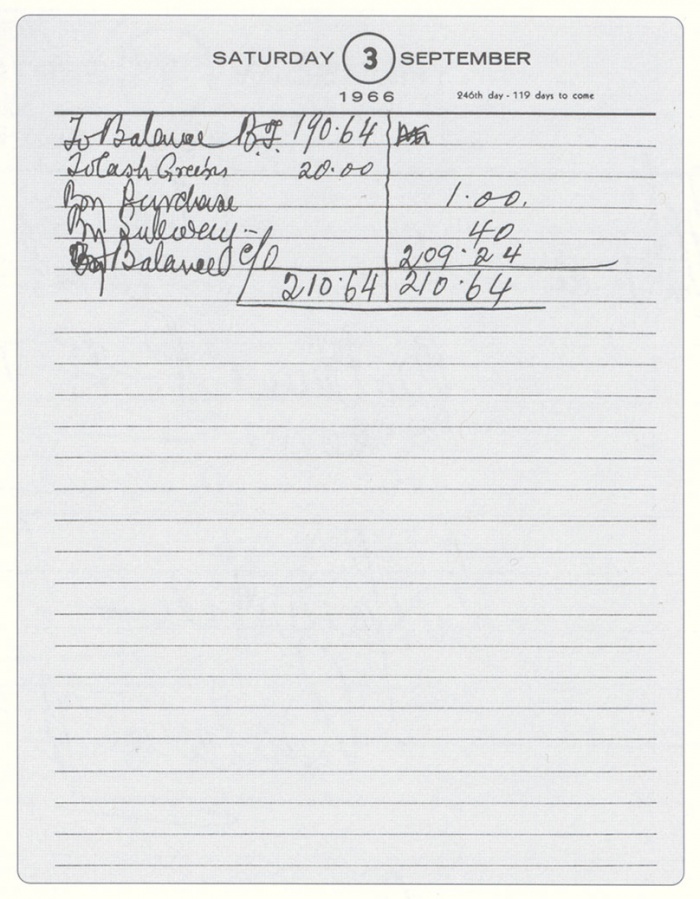 SATURDAY 3 SEPTEMBER
1966 246th day - 119 days to come
To Balance B.F. 190.64
To Cash Greens 20.00
By Purchase 1.00.
By Subway - 40
By Balance C/O 209.24
210.64 210.64